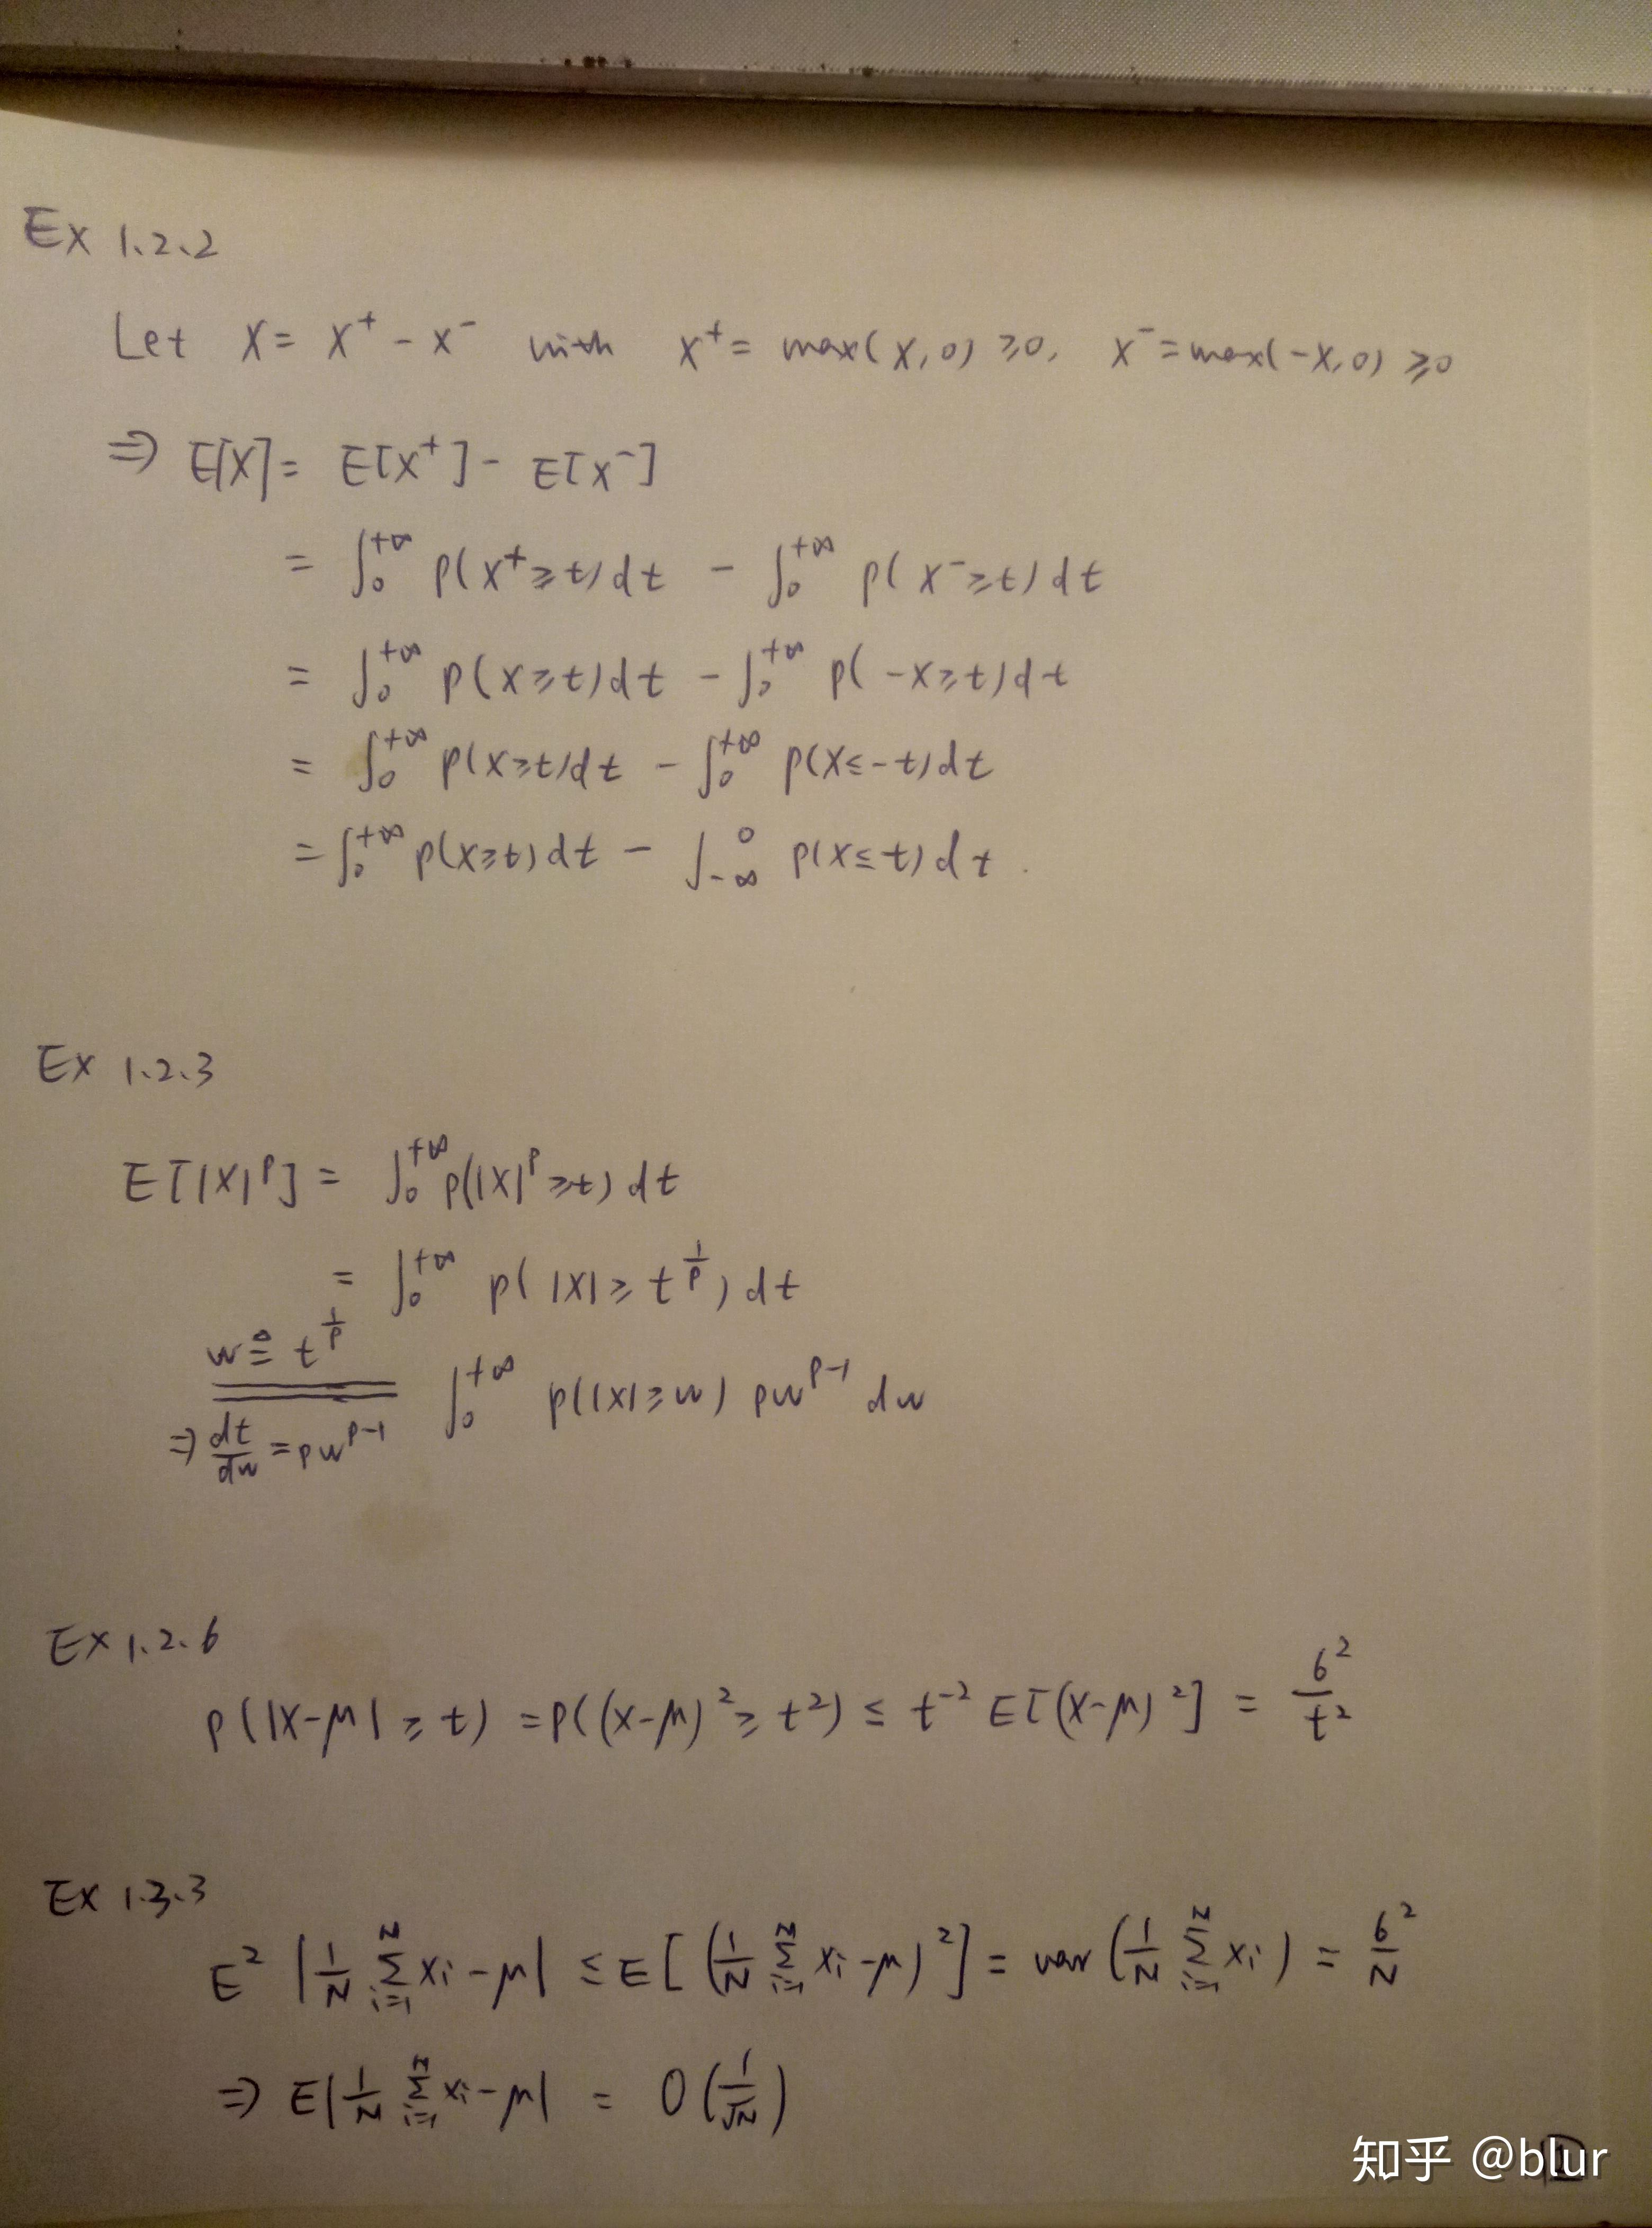 Ex 1.2.2
Let X = X⁺ - X⁻ with X⁺ = max(X, 0) ≥ 0, X⁻ = max(-X, 0) ≥ 0
⇒ E[X] = E[X⁺] - E[X⁻]
= ∫₀^{+∞} P(X⁺ ≥ t) dt - ∫₀^{+∞} P(X⁻ ≥ t) dt
= ∫₀^{+∞} P(X ≥ t) dt - ∫₀^{+∞} P(-X ≥ t) dt
= ∫₀^{+∞} P(X ≥ t) dt - ∫₀^{+∞} P(X ≤ -t) dt
= ∫₀^{+∞} P(X ≥ t) dt - ∫_{-∞}^{0} P(X ≤ t) dt.
Ex 1.2.3
E[|X|^p] = ∫₀^{+∞} P(|X|^p ≥ t) dt
= ∫₀^{+∞} P(|X| ≥ t^{1/p}) dt
w ≜ t^{1/p}
= ∫₀^{+∞} P(|X| ≥ w) p w^{p-1} dw
⇒ dt/dw = p w^{p-1}
Ex 1.2.6
P(|X-μ| ≥ t) = P((X-μ)² ≥ t²) ≤ t⁻² E[(X-μ)²] = σ²/t²
Ex 1.3.3
E² |1/N ∑_{i=1}^{N} Xi - μ| ≤ E[(1/N ∑_{i=1}^{N} Xi - μ)²] = var(1/N ∑_{i=1}^{N} Xi) = σ²/N
⇒ E|1/N ∑_{i=1}^{N} Xi - μ| = O(1/√N)
知乎 @blur